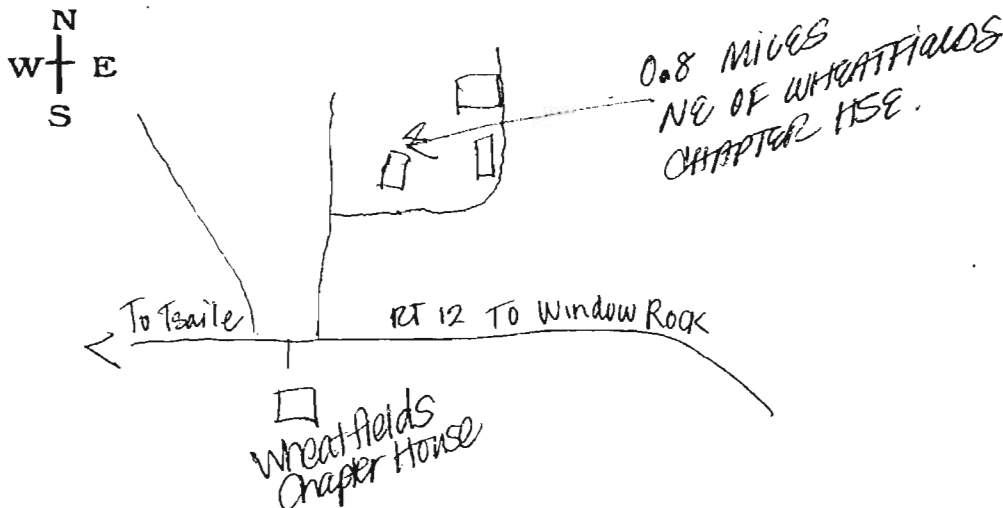 N
W E
S
0.8 MILES
NE OF WHEATFIELDS
CHAPTER HSE.
To Tsaile
RT 12 TO Window Rock
Wheatfields
Chapter House